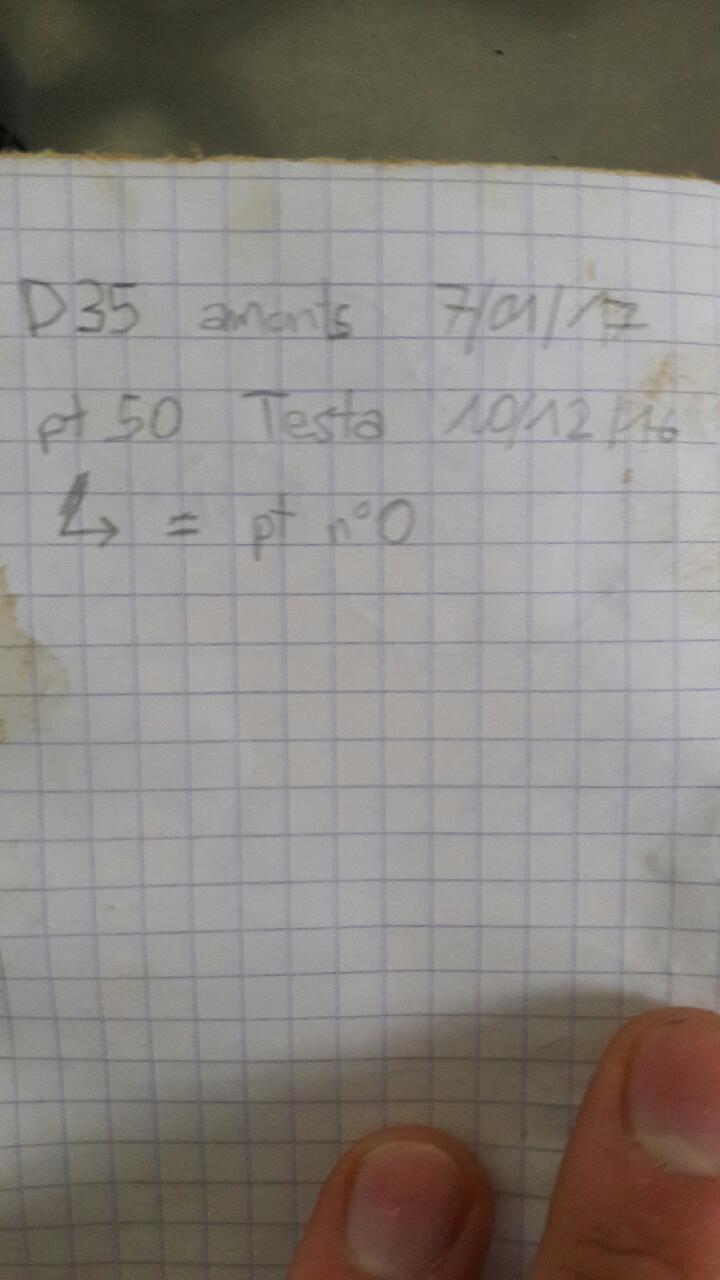 D35 amonts 7/01/17
pt 50 Testa 10/12/16
↳ = pt n°0